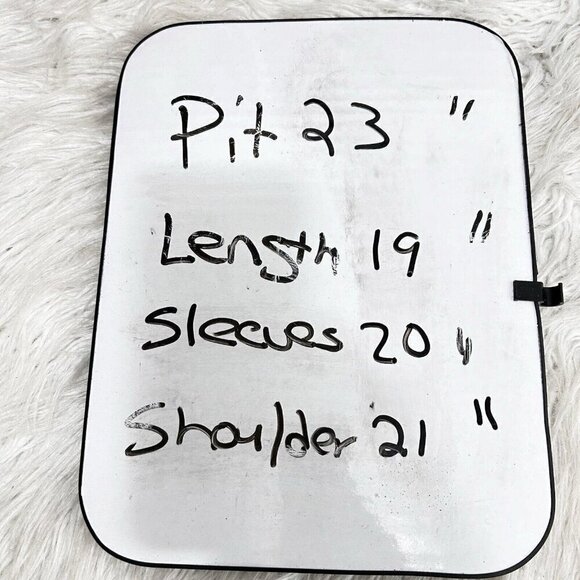 Pit 23 "
Length 19 "
Sleeves 20 "
Shoulder 21 "